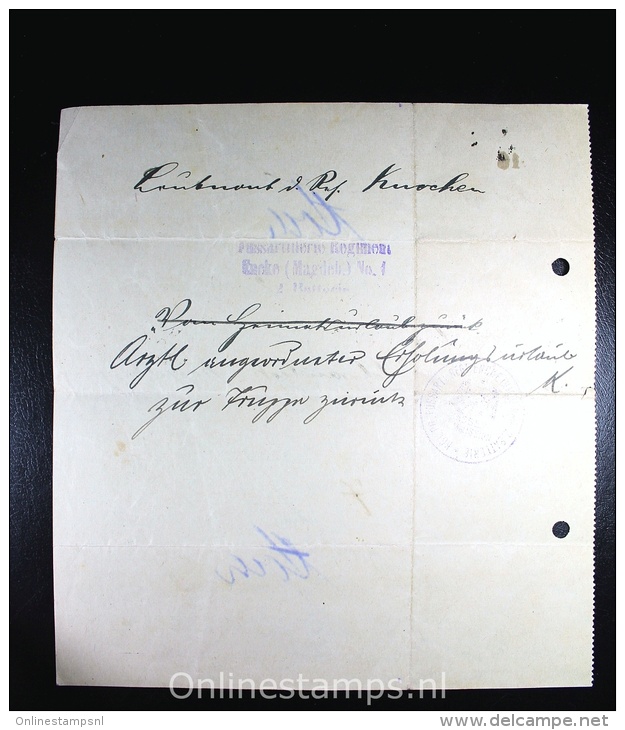 Leutnant d. Res. Knochen
Fussartillerie Regiment
Encke (Magdeb.) No. 4
4. Batterie
Vom Heimaturlaub zurück
Ärztl angeordneter Erholungsurlaub
K.
zur Truppe zurück
Onlinestamps.nl
Onlinestampsnl
www.delcampe.net